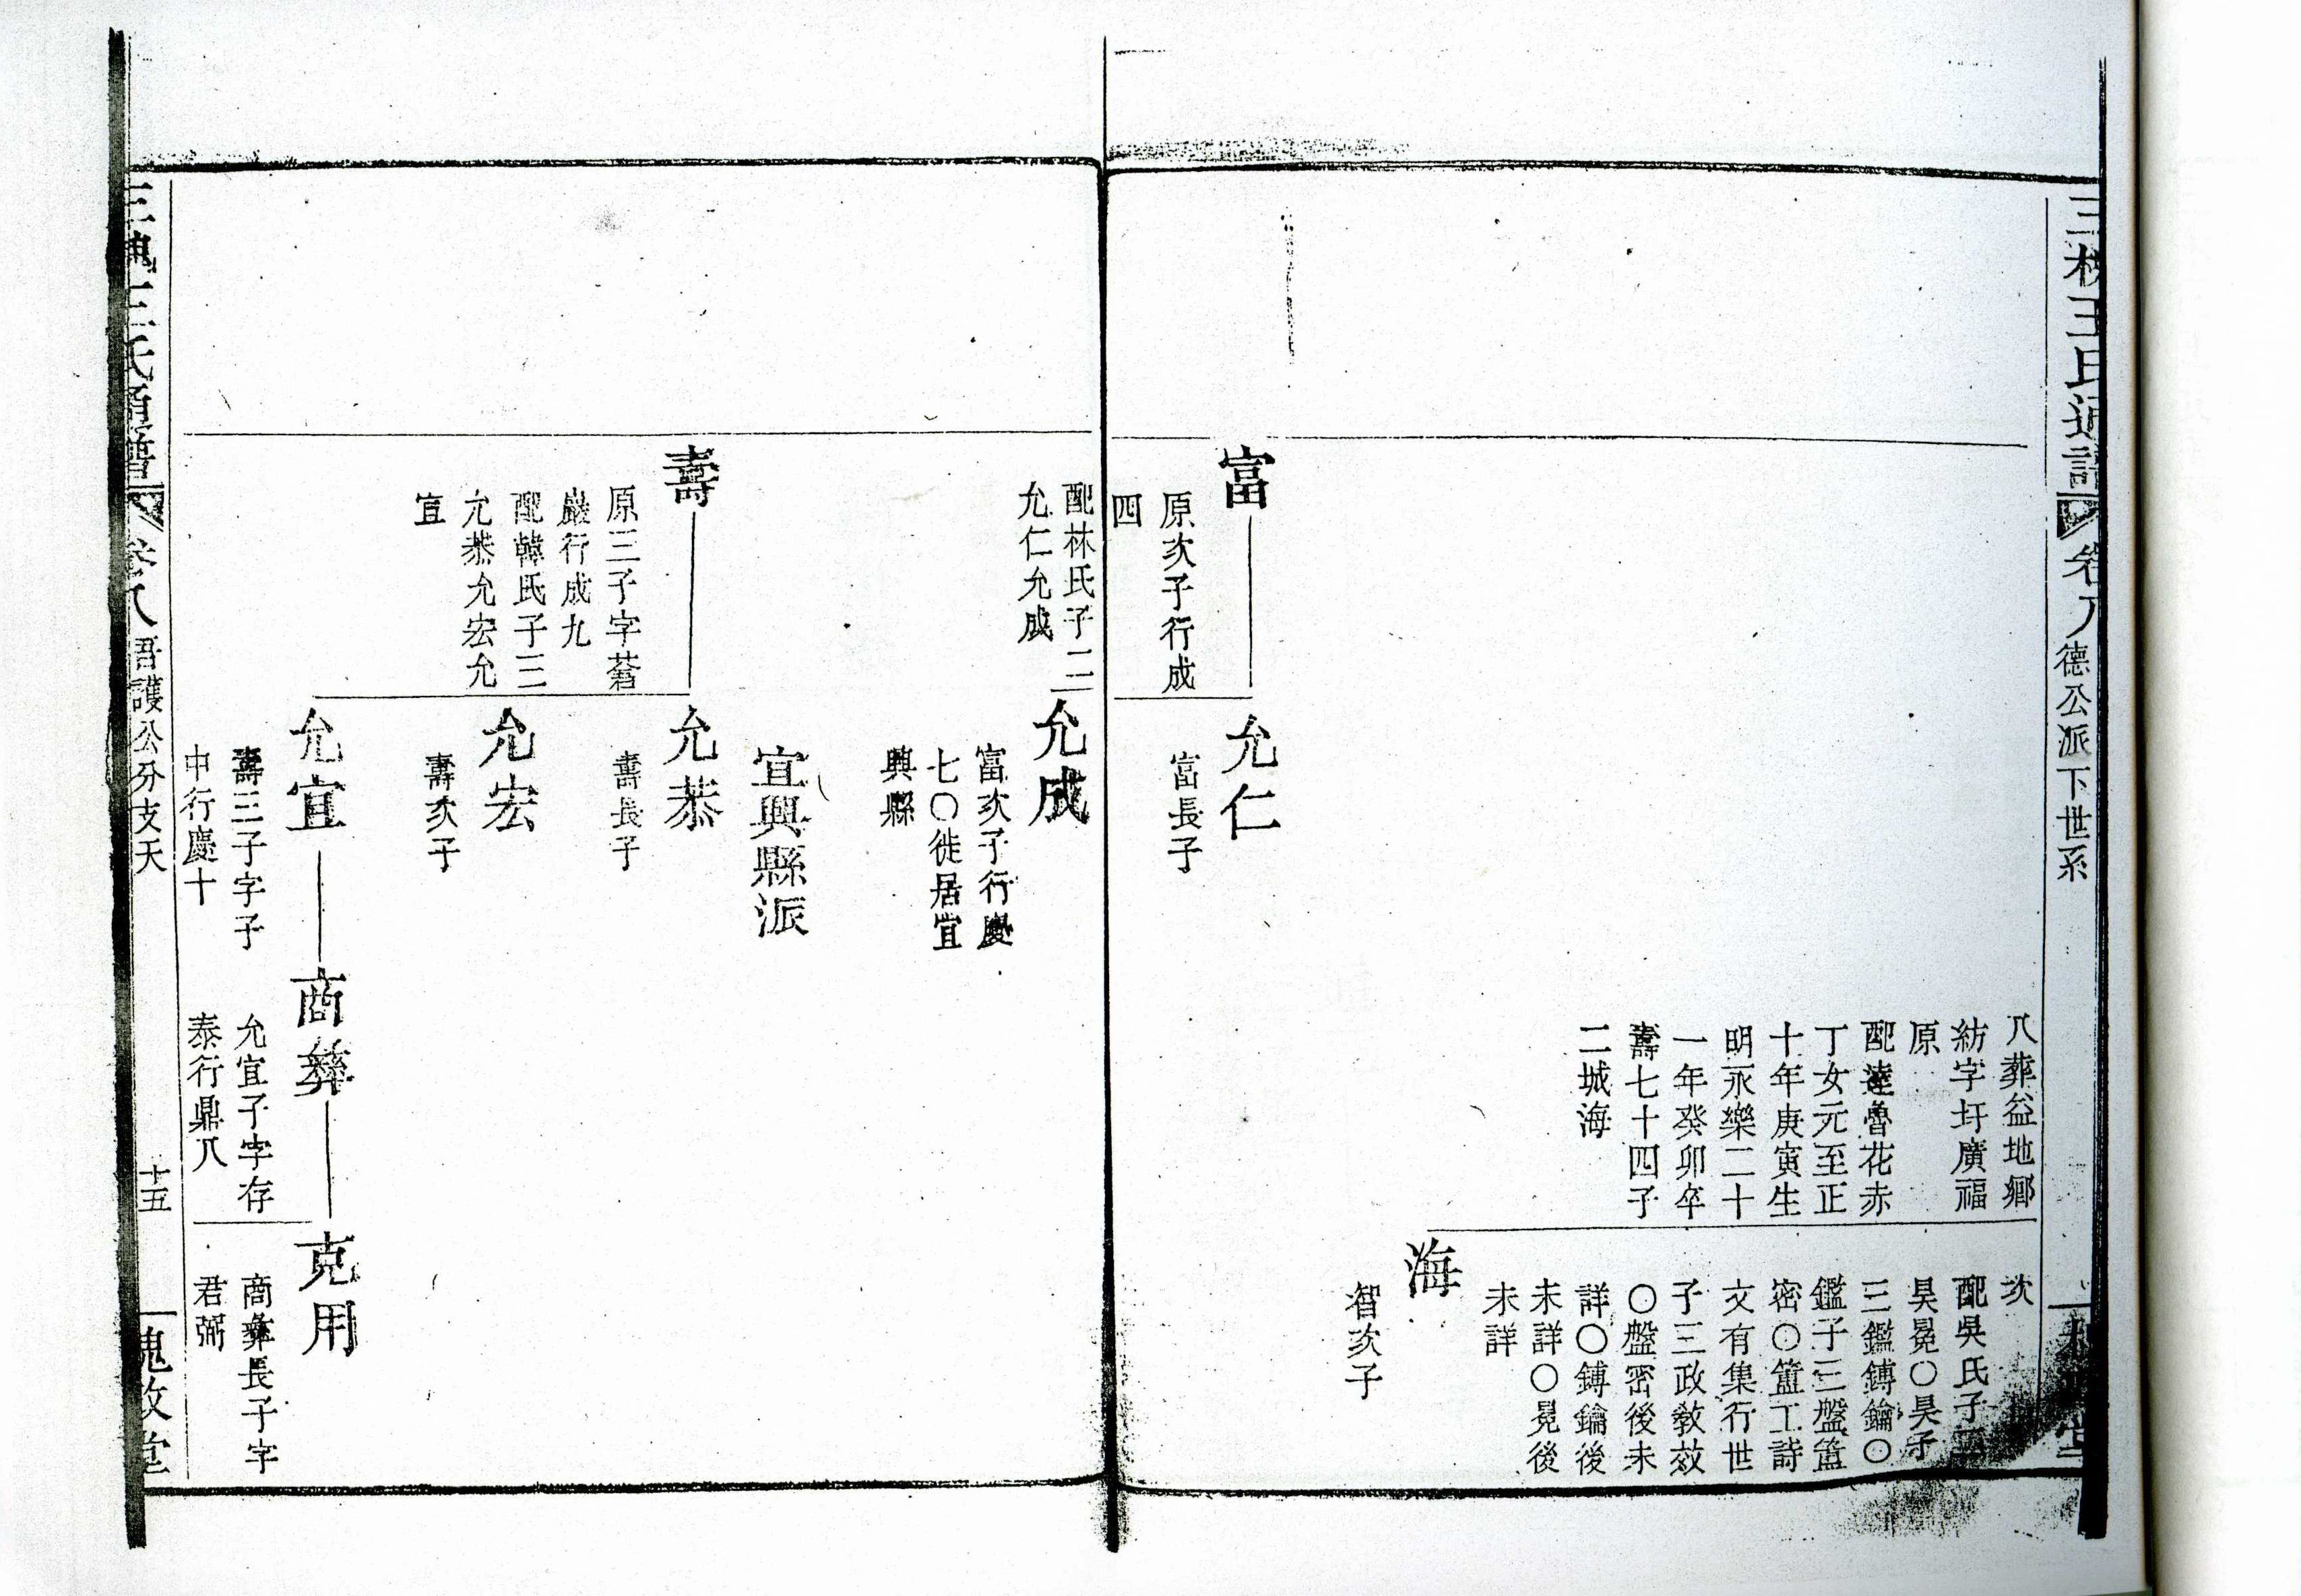 三槐王氏通譜
卷八
德公派下世系
八葬益地鄉
紡字圩廣福
原
配達魯花赤
丁女元至正
十年庚寅生
明永樂二十
一年癸卯卒
壽七十四子
二城海
次
配吳氏子二
昊冕〇昊子
三鑑鏄鑰〇
鑑子三盤簠
密〇簠工詩
文有集行世
子三政敎效
〇盤密後未
詳〇鏄鑰後
未詳〇冕後
未詳
海
智次子
富
原次子行成
四
配林氏子二
允仁允成
允仁
富長子
允成
富次子行慶
七〇徙居宜
興縣
宜興縣派
壽
原三子字蒼
巖行成九
配韓氏子三
允恭允宏允
宜
允恭
壽長子
允宏
壽次子
允宜
壽三子字子
中行慶十
商彝
允宜子字存
泰行鼎八
克用
商彝長子字
君弼
三槐王氏通譜
卷八
吾護公分支天
十五
槐政堂